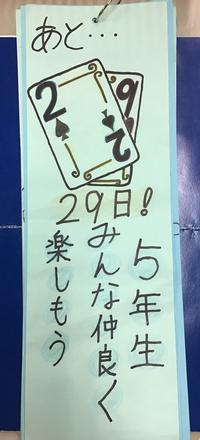 あと…
2
9
2
29日!
5年生
みんな仲良く
楽しもう